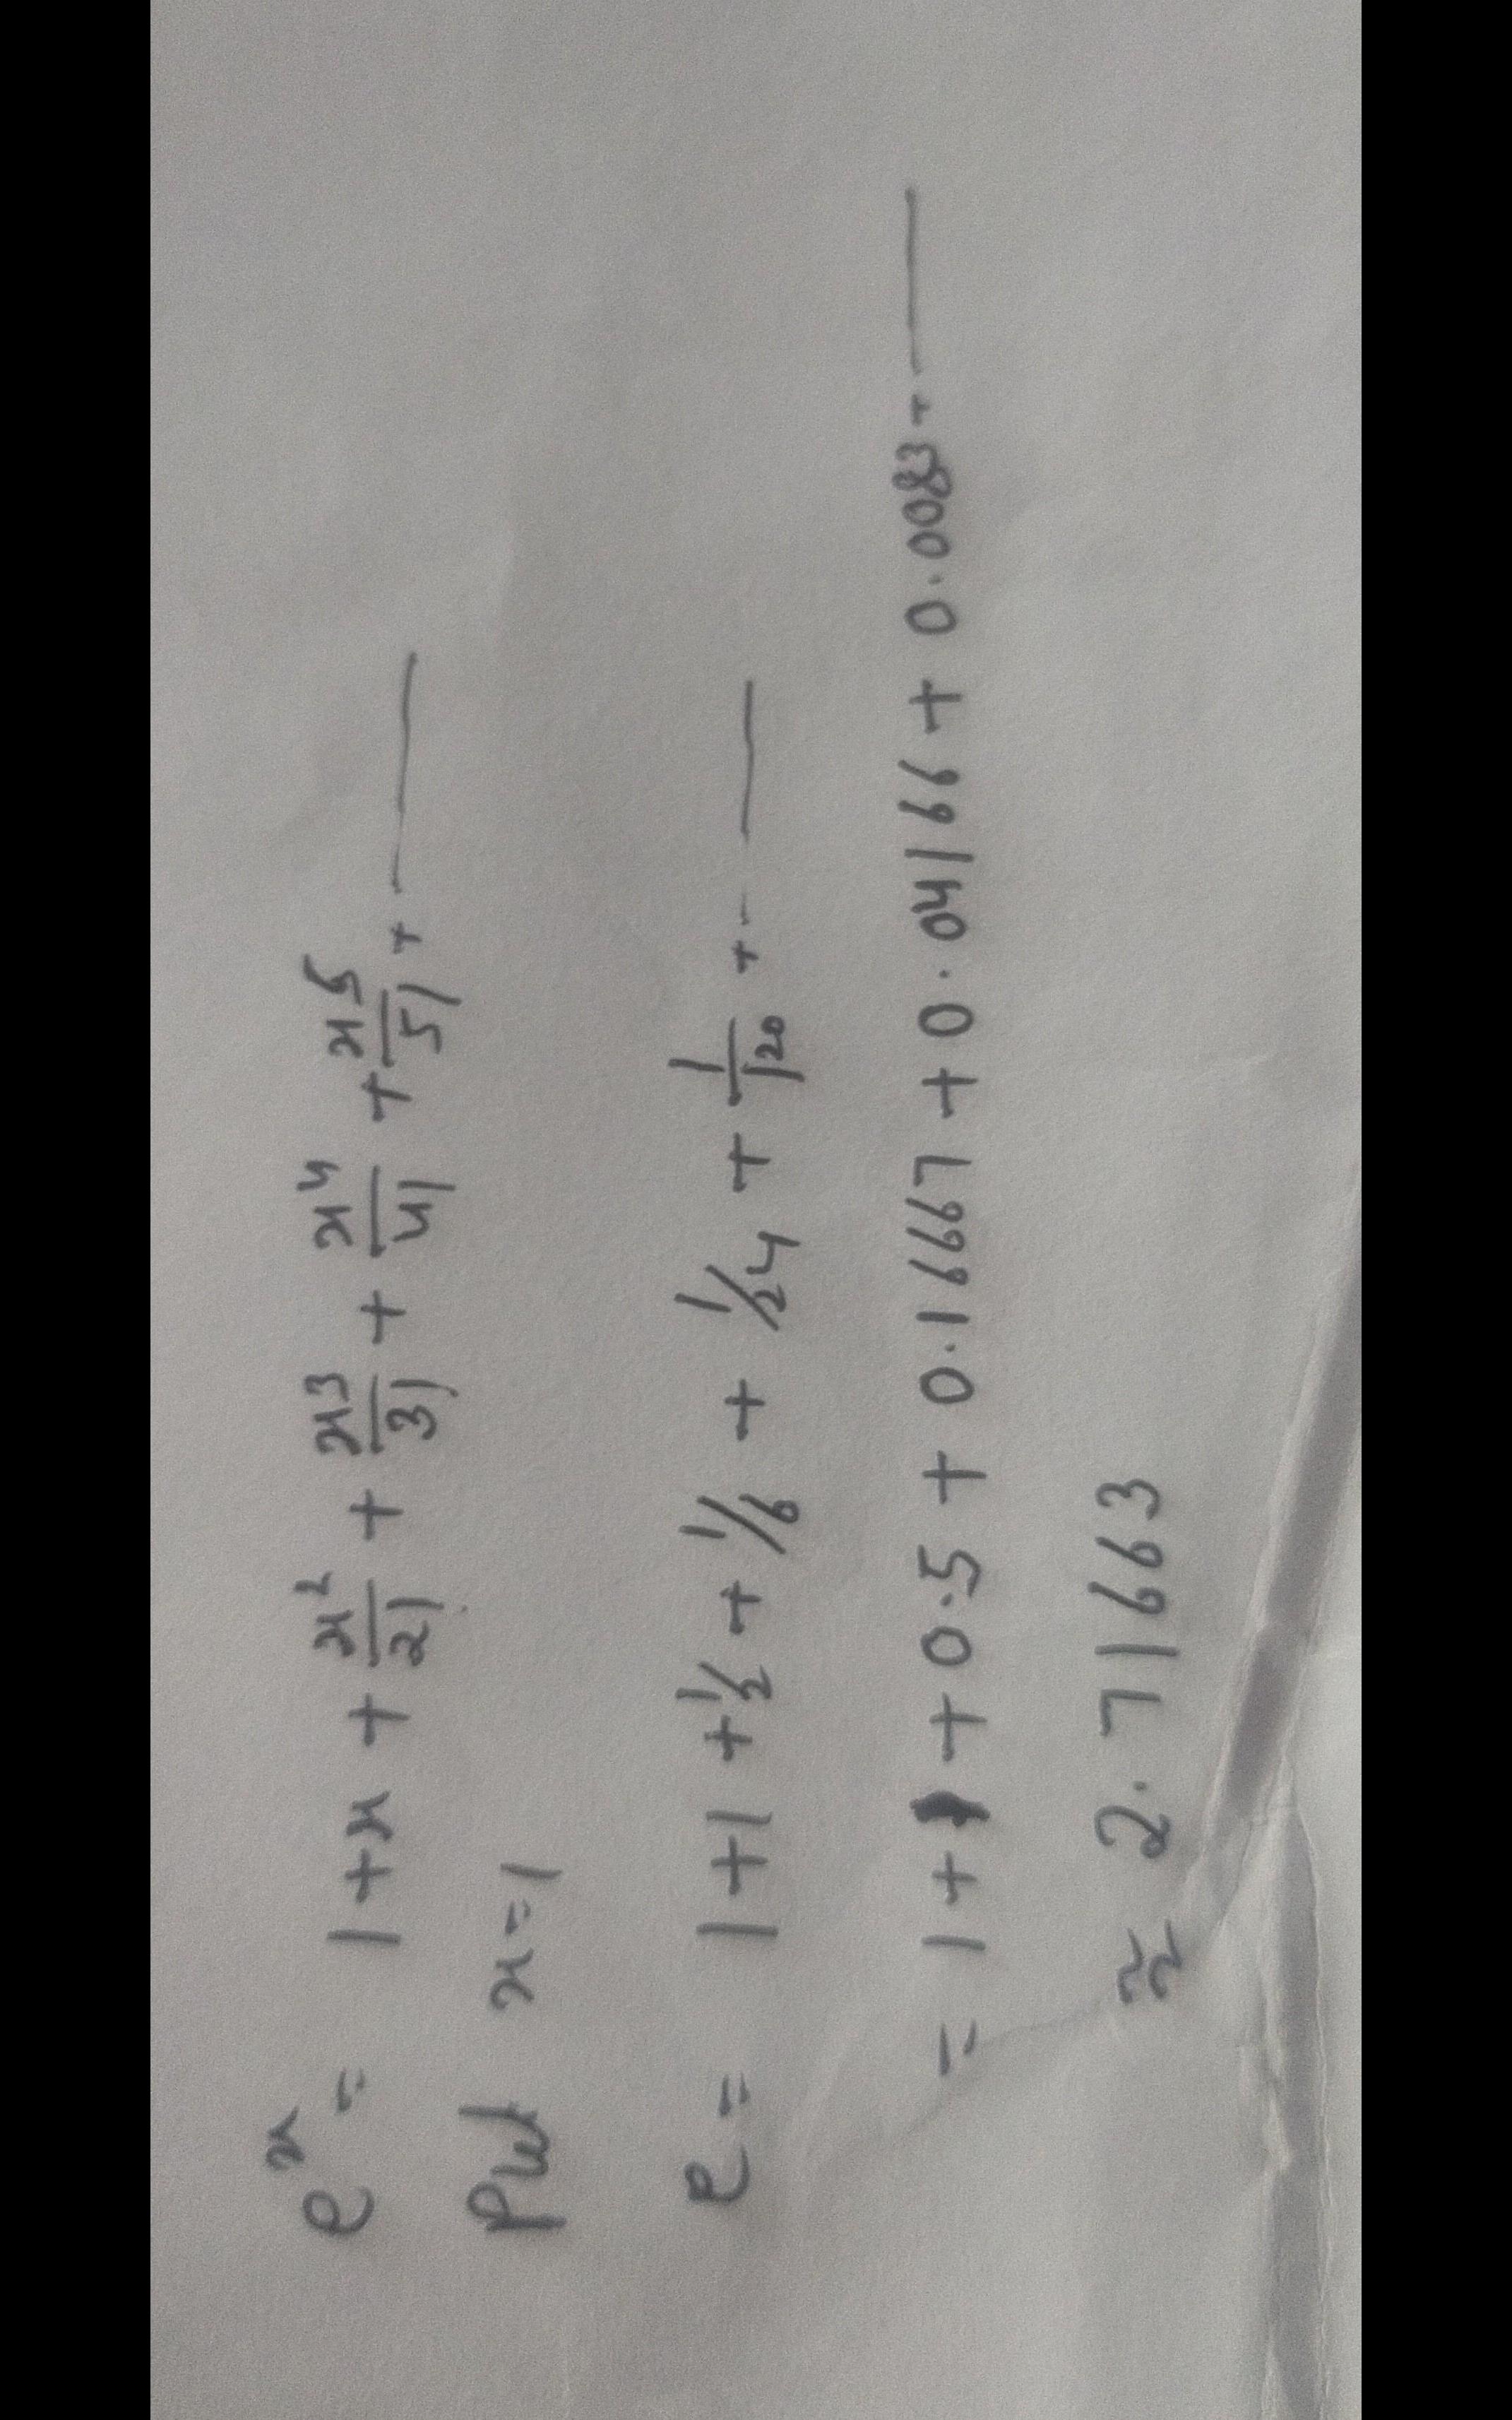 e^x = 1 + x + x^2/2! + x^3/3! + x^4/4! + x^5/5! + ———
Put x = 1
e = 1 + 1 + 1/2 + 1/6 + 1/24 + 1/120 + - ———
= 1 + 1 + 0.5 + 0.16667 + 0.04166 + 0.0083 + ———
≈ 2.71663